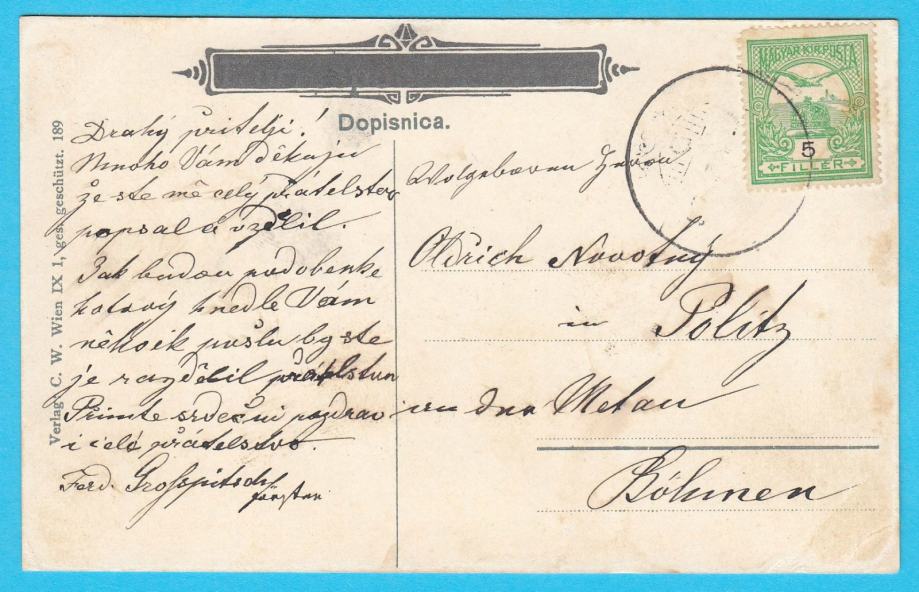 Dopisnica.
Verlag: C. W. Wien IX 1, ges. geschützt. 189
MAGYAR KIR. POSTA
5
FILLÉR
Drahý příteli!
Mnoho Vám děkuju
že ste mě celý přátelstvo
popsal a vzdělil.
Jak budou podobenke
hotový hnedle Vám
někoik pošlu by ste
je rozdělil
Přimte srdečni pozdrav
i celé přátelstvo.
Ferd.
Wolgeboren Herrn
Oldřich Novotný
in Politz
an der Metau
Böhmen